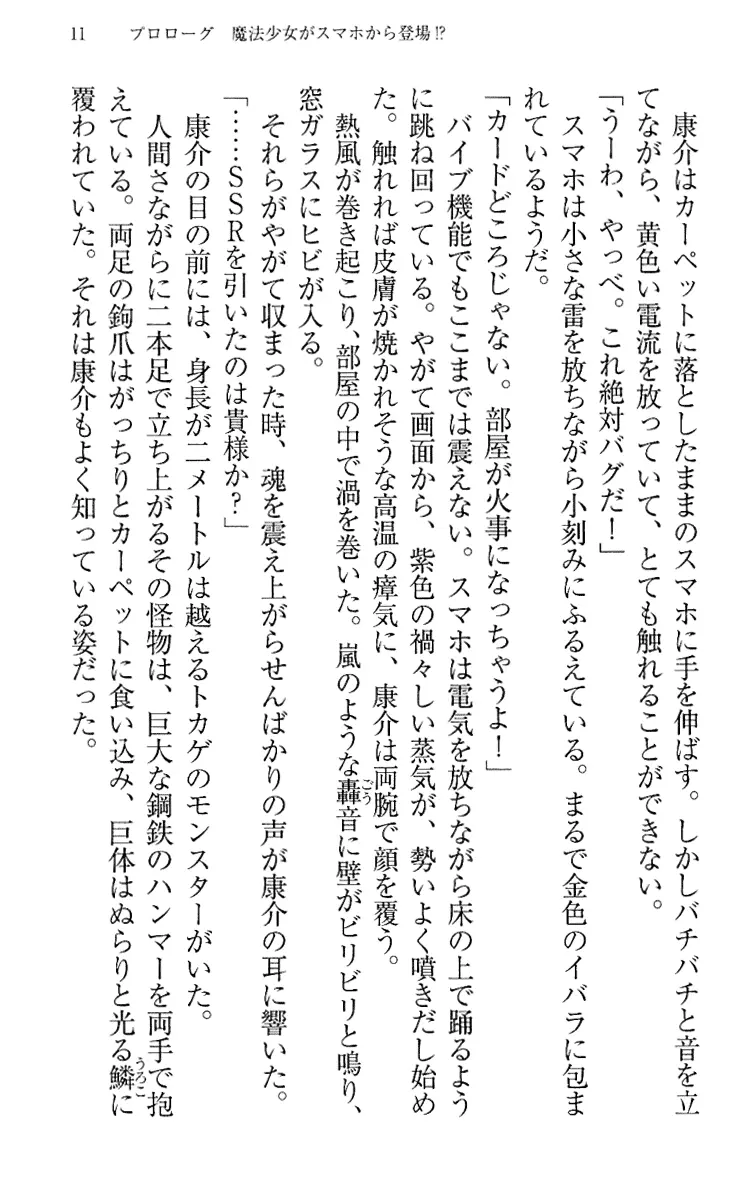 11　プロローグ　魔法少女がスマホから登場!?
　康介はカーペットに落としたままのスマホに手を伸ばす。しかしバチバチと音を立
てながら、黄色い電流を放っていて、とても触れることができない。
「うーわ、やっべ。これ絶対バグだ！」
　スマホは小さな雷を放ちながら小刻みにふるえている。まるで金色のイバラに包ま
れているようだ。
「カードどころじゃない。部屋が火事になっちゃうよ！」
　バイブ機能でもここまでは震えない。スマホは電気を放ちながら床の上で踊るよう
に跳ね回っている。やがて画面から、紫色の禍々しい蒸気が、勢いよく噴きだし始め
た。触れれば皮膚が焼かれそうな高温の瘴気に、康介は両腕で顔を覆う。
　熱風が巻き起こり、部屋の中で渦を巻いた。嵐のような轟音に壁がビリビリと鳴り、
窓ガラスにヒビが入る。
　それらがやがて収まった時、魂を震え上がらせんばかりの声が康介の耳に響いた。
「……ＳＳＲを引いたのは貴様か？」
　康介の目の前には、身長が二メートルは越えるトカゲのモンスターがいた。
　人間さながらに二本足で立ち上がるその怪物は、巨大な鋼鉄のハンマーを両手で抱
えている。両足の鉤爪はがっちりとカーペットに食い込み、巨体はぬらりと光る鱗に
覆われていた。それは康介もよく知っている姿だった。